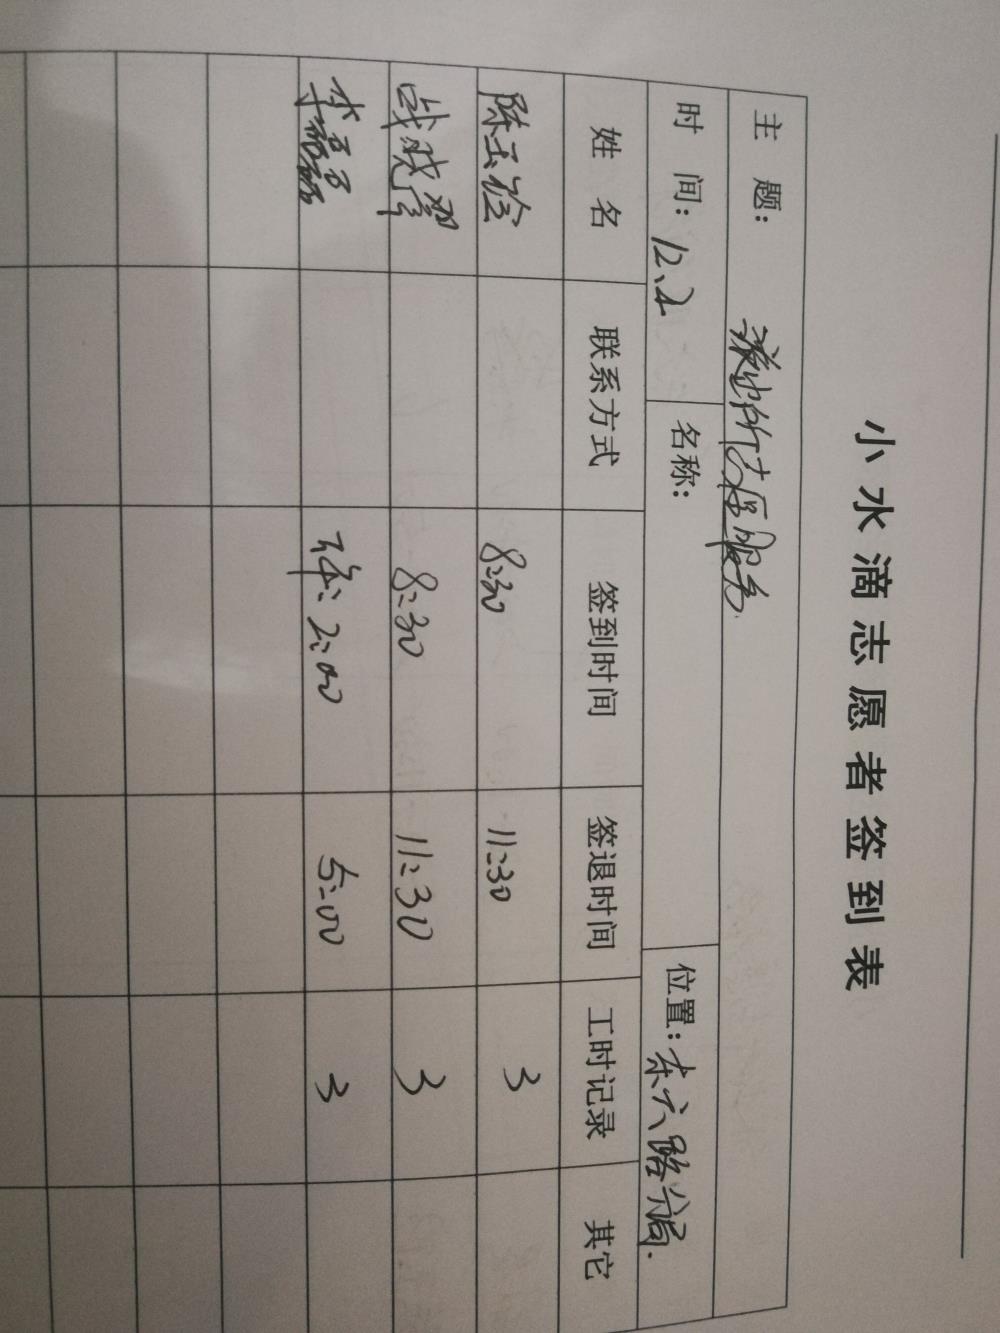 小水滴志愿者签到表
主 题: 派出所志愿服务
时 间: 12、2 名称: 位置: 东六路分局.
姓 名 联系方式 签到时间 签退时间 工时记录 其它
陈玉玲 8:30 11:30 3
战晓 8:30 11:30 3
李磊磊 2:00 5:00 3